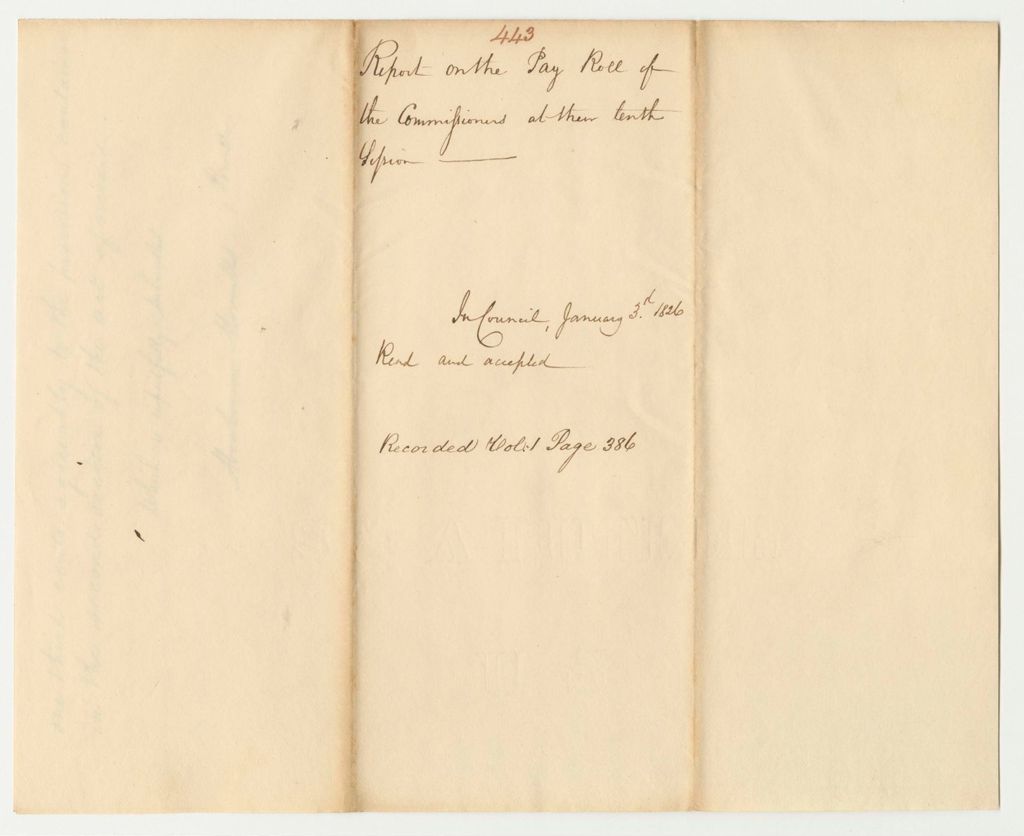 443
Report on the Pay Roll of
the Commissioners at their tenth
Session
In Council, January 3.d 1826
Read and accepted
Recorded Vol:1 Page 386